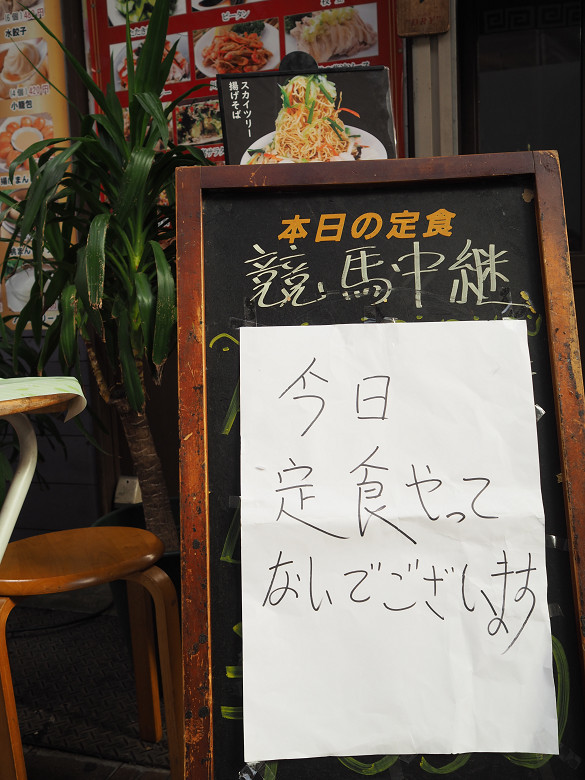 水餃子
小籠包
ピータン
スカイツリー
揚げそば
本日の定食
競馬中継
今日
定食やって
ないでございます